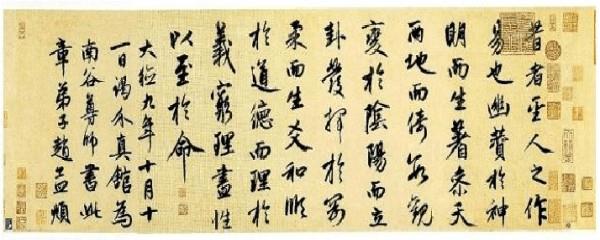 昔者聖人之作
易也幽贊於神
明而生蓍參天
兩地而倚數觀
變於陰陽而立
卦發揮於剛
柔而生爻和順
於道德而理於
義窮理盡性
以至於命
大德九年十月十
一日謁本真館為
南谷尊師書此
章弟子趙孟頫